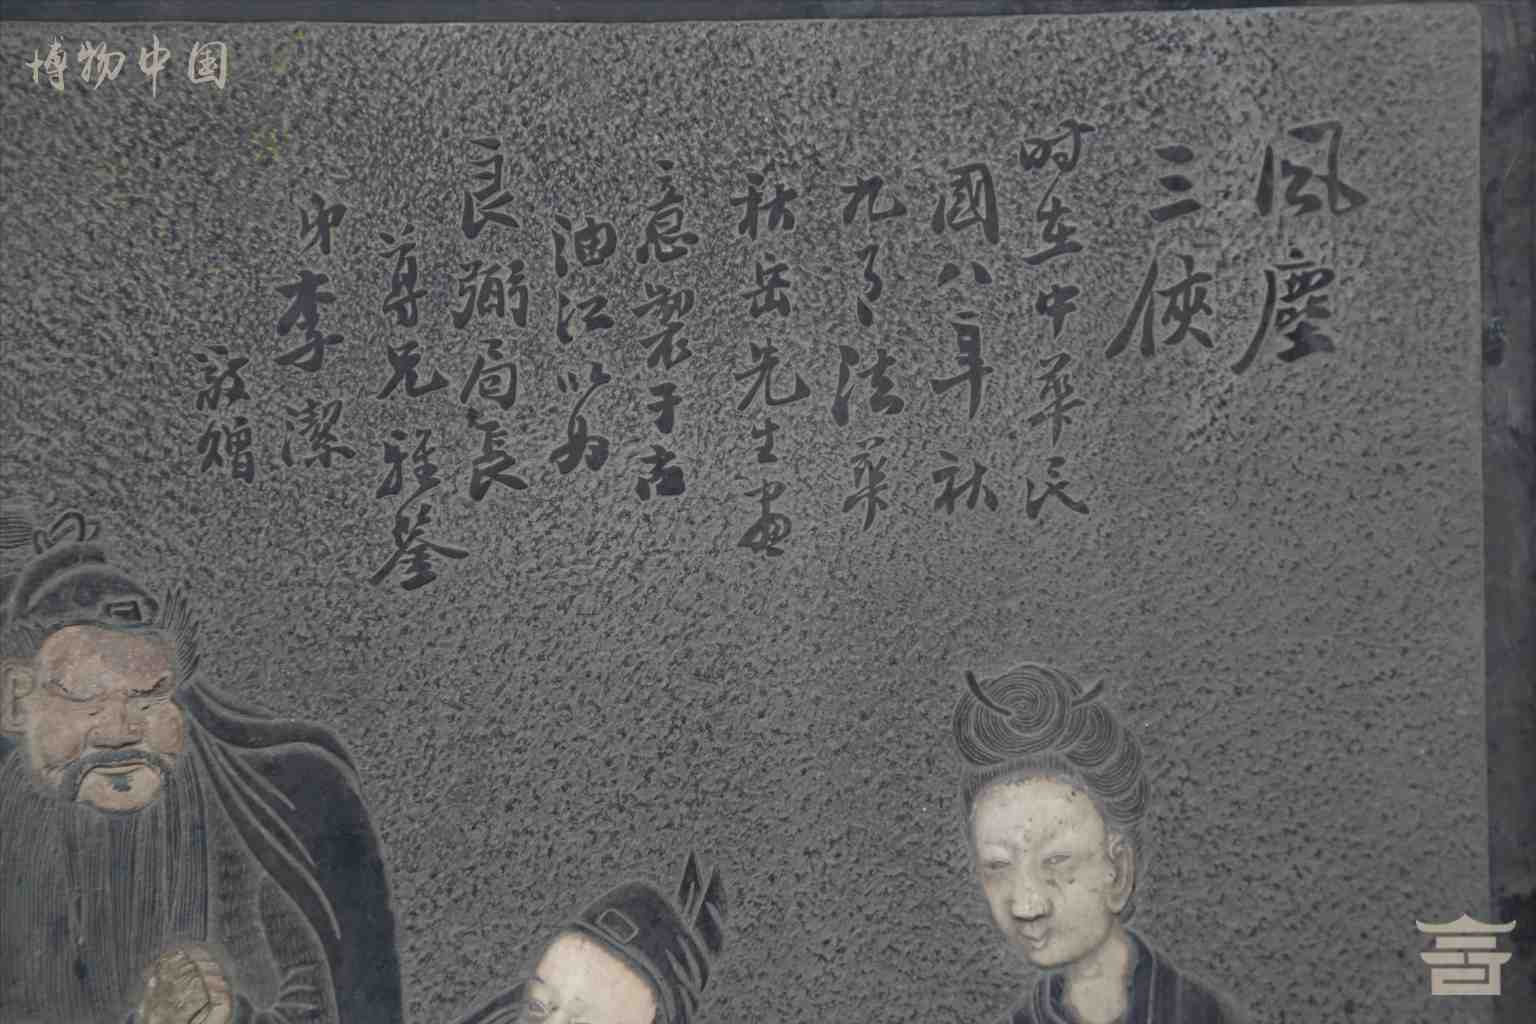 風塵
三俠
时在中華民
國八年秋
九月法華
秋岳先生畫
意製于古
油江以为
良弼局長
尊兄雅鉴
弟李潔
敬贈
博物中国